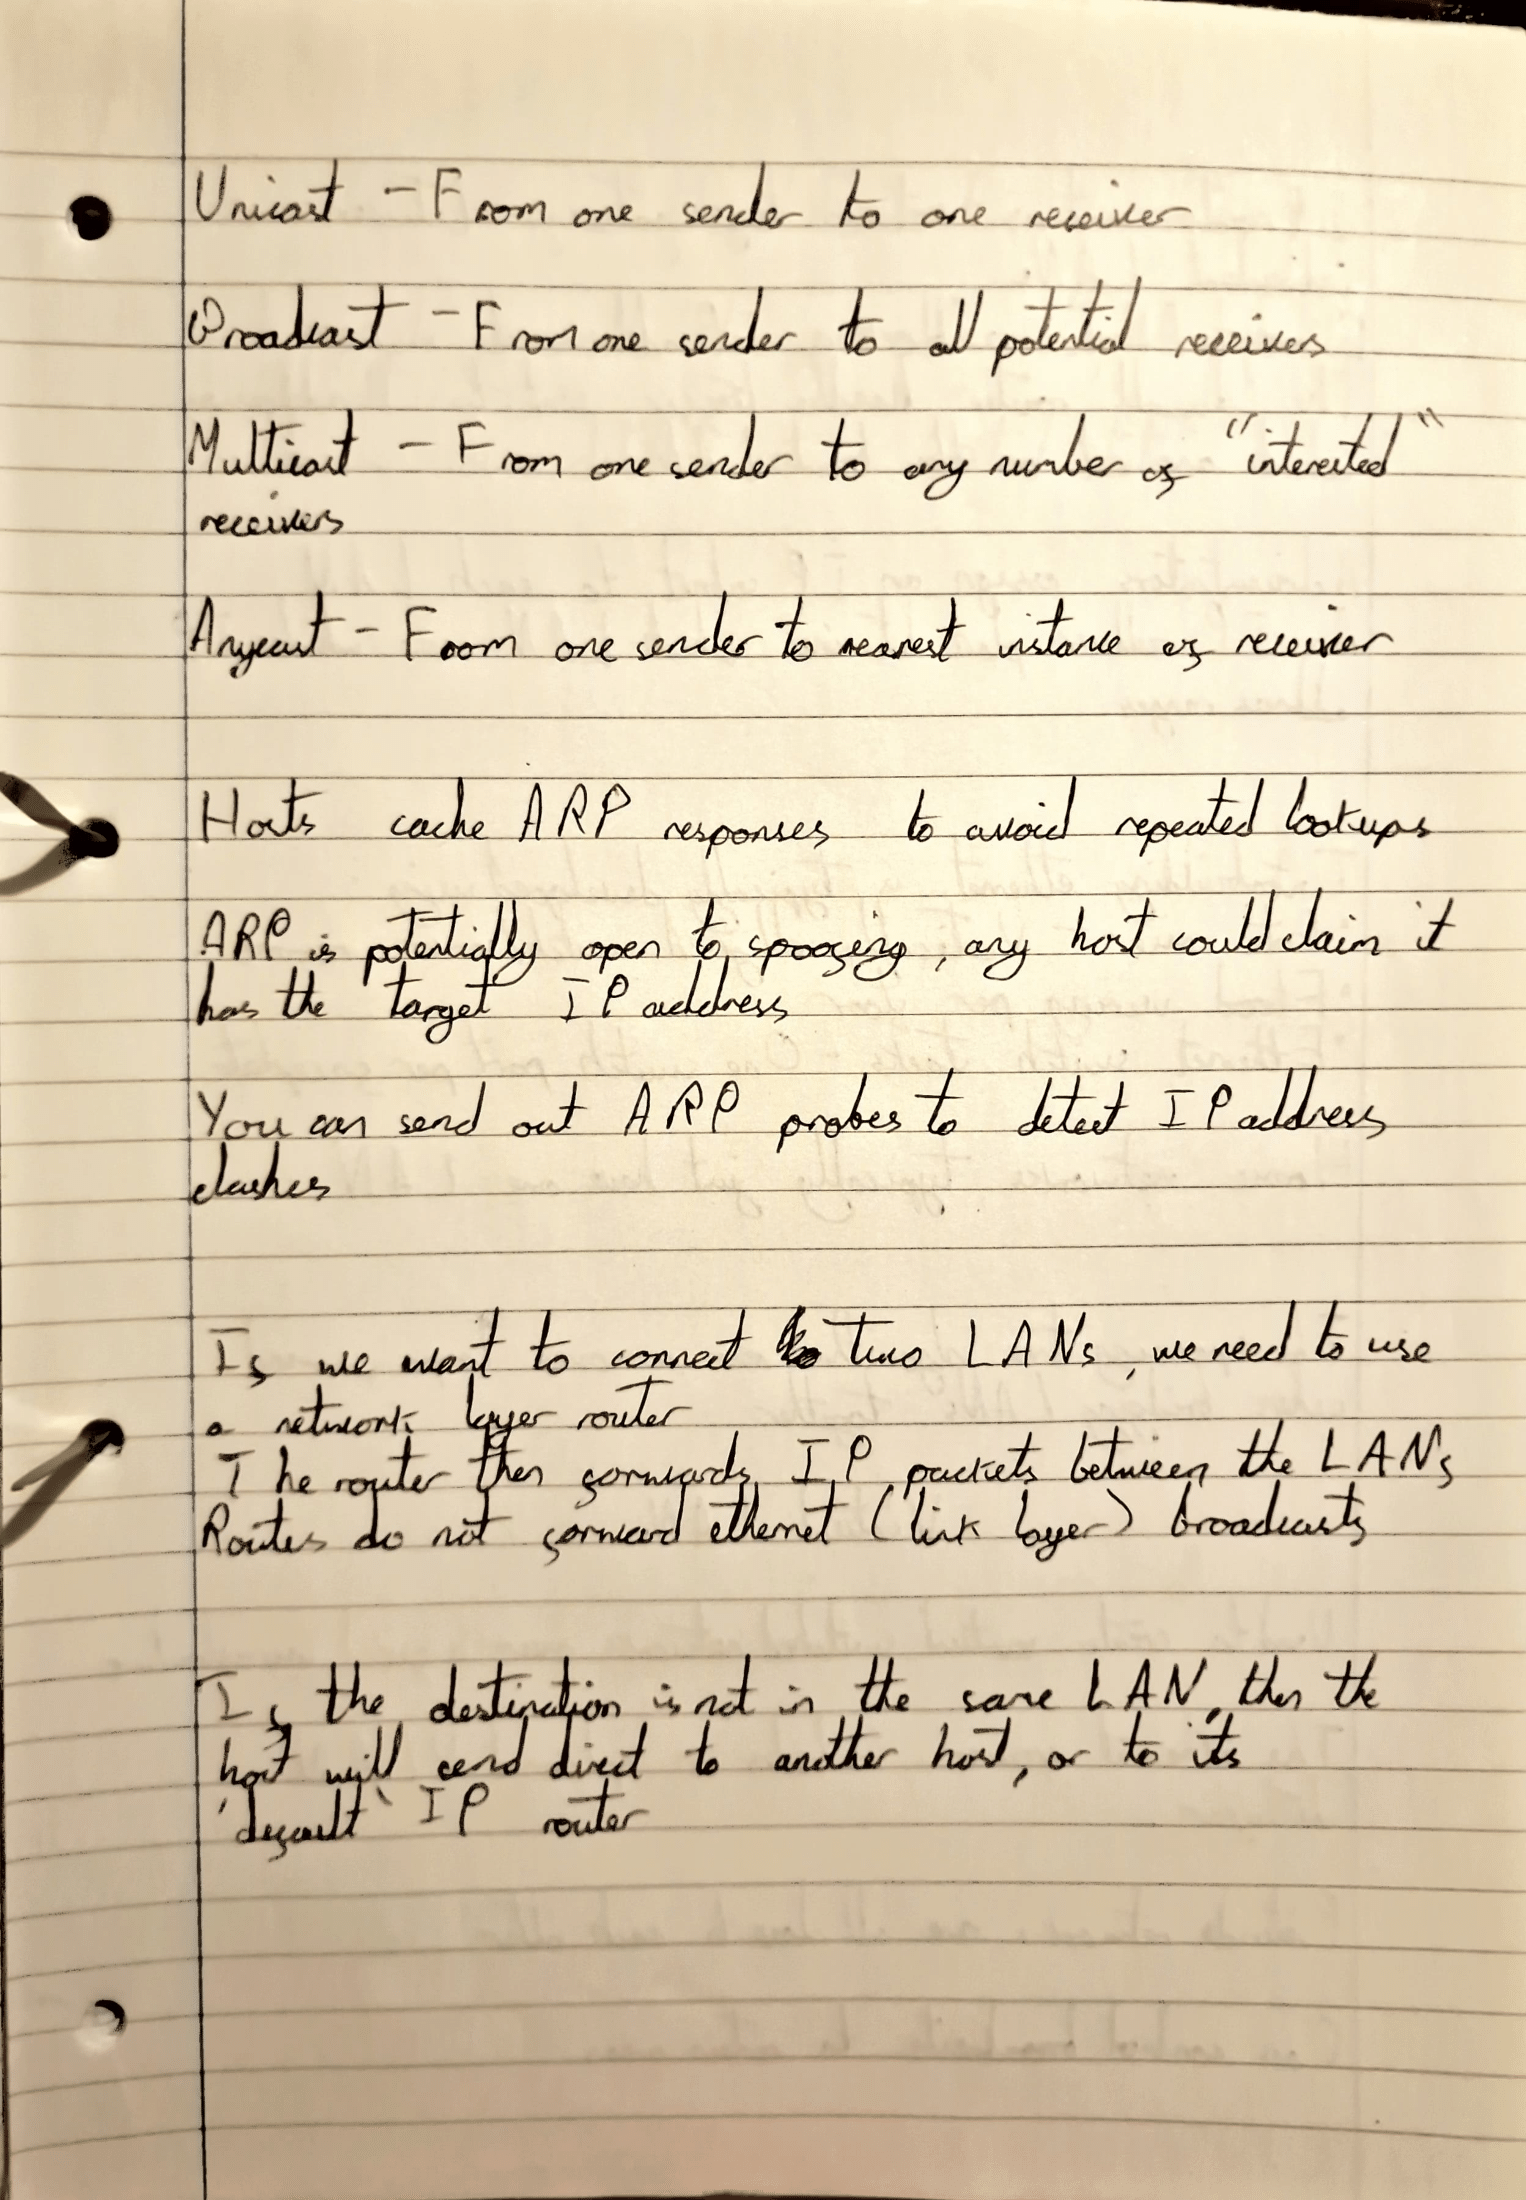 Unicast - From one sender to one receiver
Broadcast - From one sender to all potential receivers
Multicast - From one sender to any number of "interested"
receivers
Anycast - From one sender to nearest instance of receiver
Hosts cache ARP responses to avoid repeated lookups
ARP is potentially open to spoofing, any host could claim it
has the target IP address
You can send out ARP probes to detect IP address
clashes
If we want to connect to two LANs, we need to use
a network layer router
The router then forwards IP packets between the LANs
Routes do not forward ethernet (link layer) broadcasts
If the destination is not in the same LAN, then the
host will send direct to another host, or to its
'default' IP router